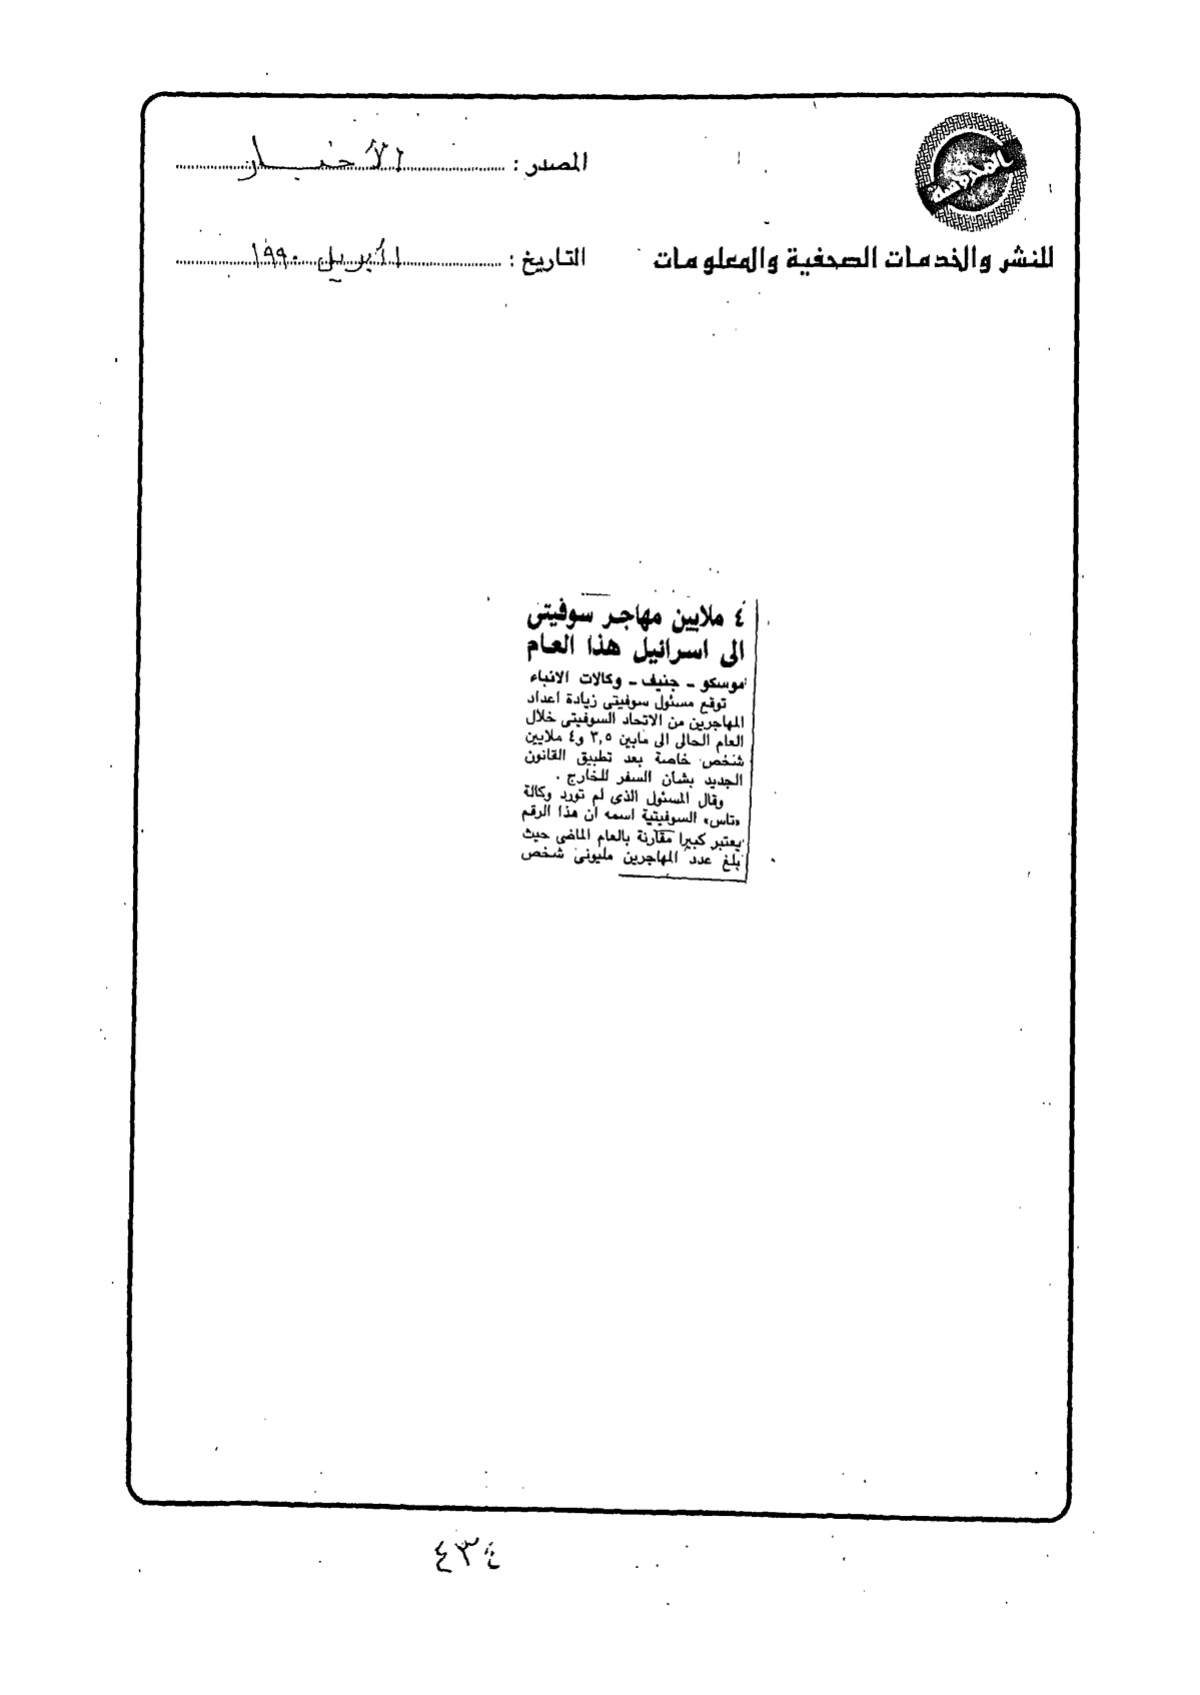 المحروسة
المصدر : الأخبار
للنشر والخدمات الصحفية والمعلومات
التاريخ : ١ أبريل ١٩٩٠
٤ ملايين مهاجر سوفيتى
الى اسرائيل هذا العام
موسكو - جنيف - وكالات الانباء
توقع مسئول سوفيتى زيادة اعداد
المهاجرين من الاتحاد السوفيتى خلال
العام الحالى الى مابين ٣,٥ و٤ ملايين
شخص خاصة بعد تطبيق القانون
الجديد بشأن السفر للخارج .
وقال المسئول الذى لم تورد وكالة
«تاس» السوفيتية اسمه ان هذا الرقم
يعتبر كبيرا مقارنة بالعام الماضى حيث
بلغ عدد المهاجرين مليونى شخص
٤٣٤